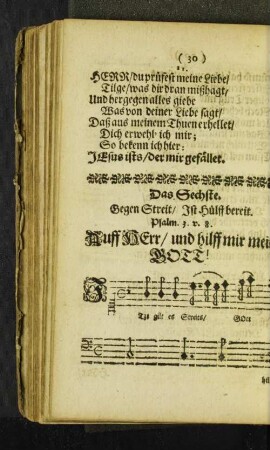 ( 30 )
11.
HERR/ du prüfest meine Liebe/
Tilge/ was dir dran mißhagt/
Und hergegen alles giebe
Was von deiner Liebe sagt/
Daß aus meinem Thuen erhellet/
Dich erwehl ich mir;
So bekenn ich hier:
JEsus ists/ der mir gefället.
Das Sechste.
Gegen Streit/ Ist Hülff bereit.
Psalm. 3. v. 8.
Auff HErr/ und hilff mir mein
GOTT!
Tzt gilt es Streits/ GOtt